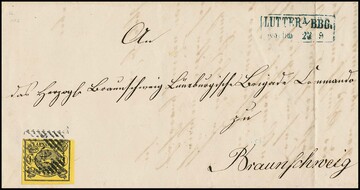 LUTTER A/BBG.
An
das Herzogl. Braunschweig Lüneburgische Brigade Commando
zu
Braunschweig